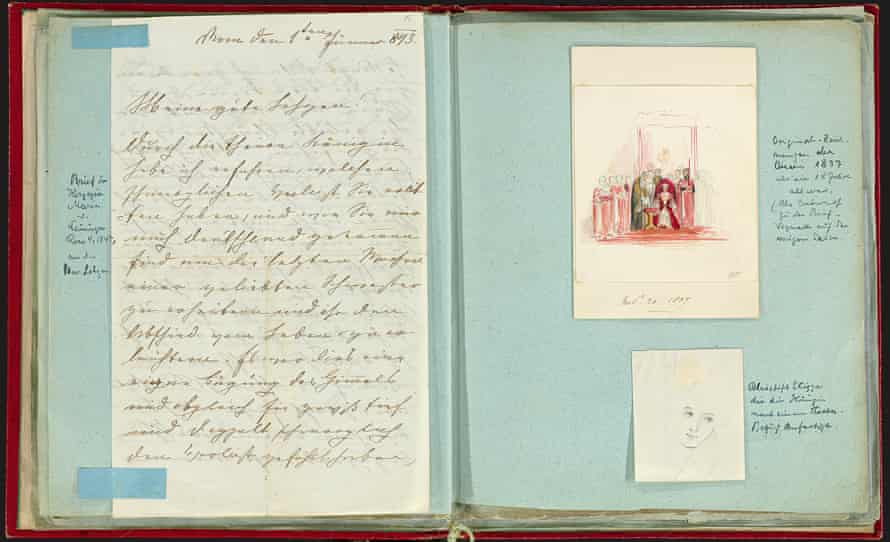 Rom den 1ten Jänner 843.
Meine gute Lehzen!
Durch die theure Königin
habe ich erfahren, welchen
schmerzlichen Verlust Sie erlit-
ten haben, und wie Sie nur
nach Deutschland gekommen
sind um die letzten Wochen
einer geliebten Schwester
zu erheitern und ihr den
Abschied vom Leben zu er-
leichtern. Es war dies eine
eigne Fügung des Himmels
und obgleich Sie gewiß tief
und doppelt schmerzlich
den Verlust gefühlt haben,
Brief der
Herzogin
Marie
v.
Leiningen
an die
Bar. Lehzen
Original-Zeich-
nungen der
Queen 1837
als sie 18 Jahre
alt war,
(Als Entwurf
zu der Brief-
Nov. 20. 1837
Bleistift Skizze
die die Königin
nach einem Theater-
Besuch anfertigte.